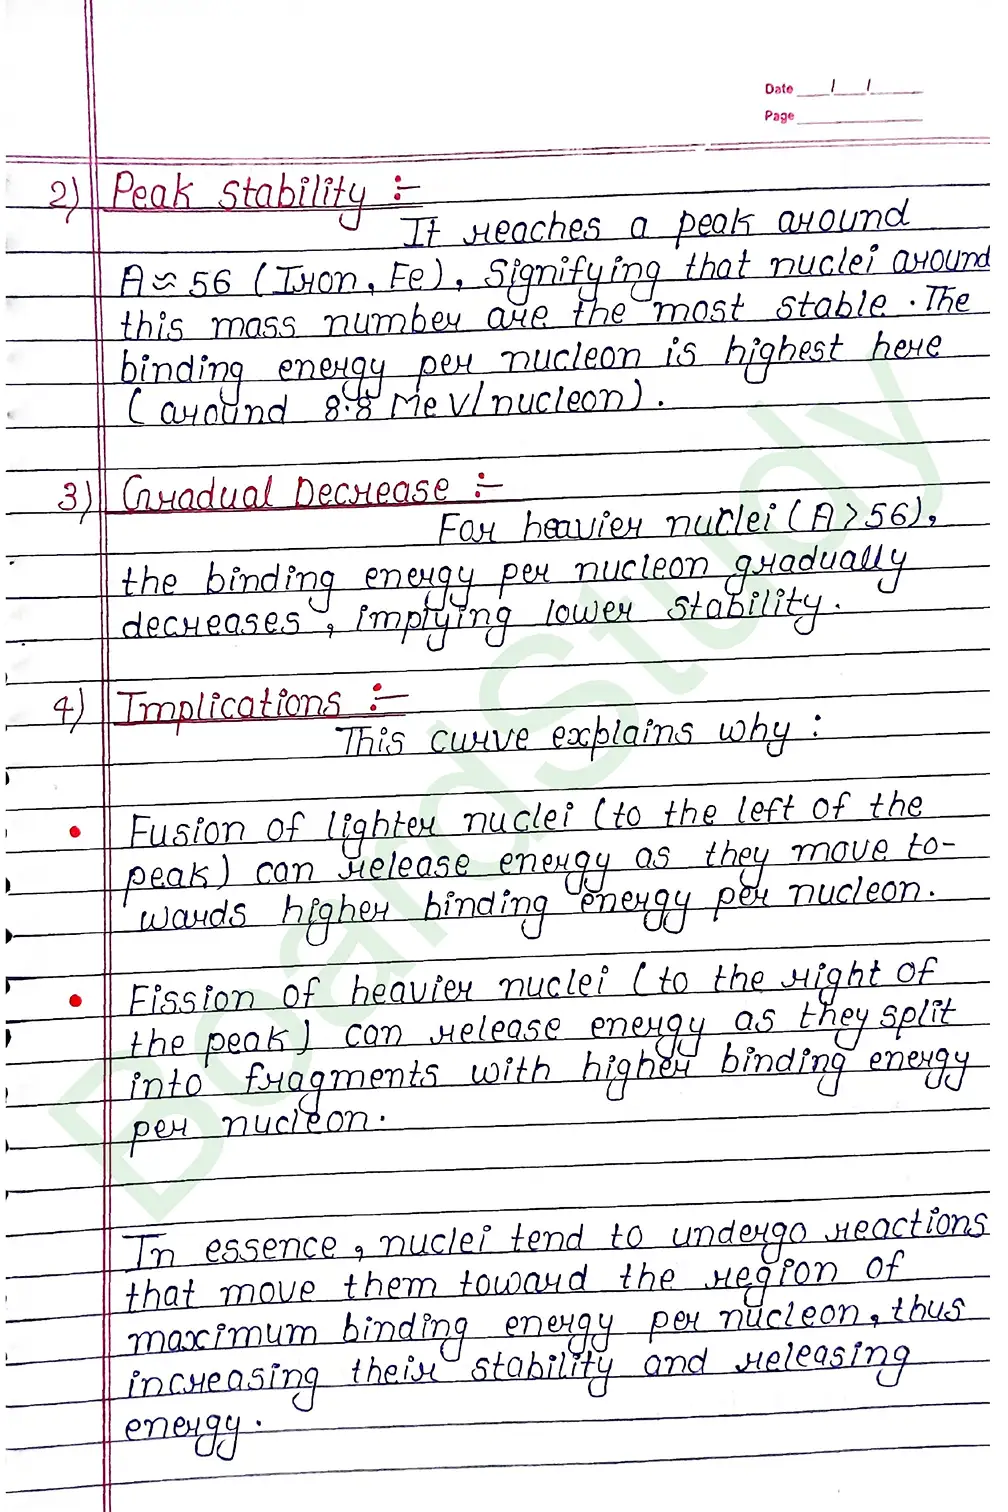 Date / /
Page
2) Peak Stability :-
It reaches a peak around
A ≈ 56 (Iron, Fe), Signifying that nuclei around
this mass number are the most stable. The
binding energy per nucleon is highest here
(around 8.8 MeV/nucleon).
3) Gradual Decrease :-
For heavier nuclei (A > 56),
the binding energy per nucleon gradually
decreases, implying lower stability.
4) Implications :-
This curve explains why :
• Fusion of lighter nuclei (to the left of the
peak) can release energy as they move to-
wards higher binding energy per nucleon.
• Fission of heavier nuclei (to the right of
the peak) can release energy as they split
into fragments with higher binding energy
per nucleon.
In essence, nuclei tend to undergo reactions
that move them toward the region of
maximum binding energy per nucleon, thus
increasing their stability and releasing
energy.
BoardStudy